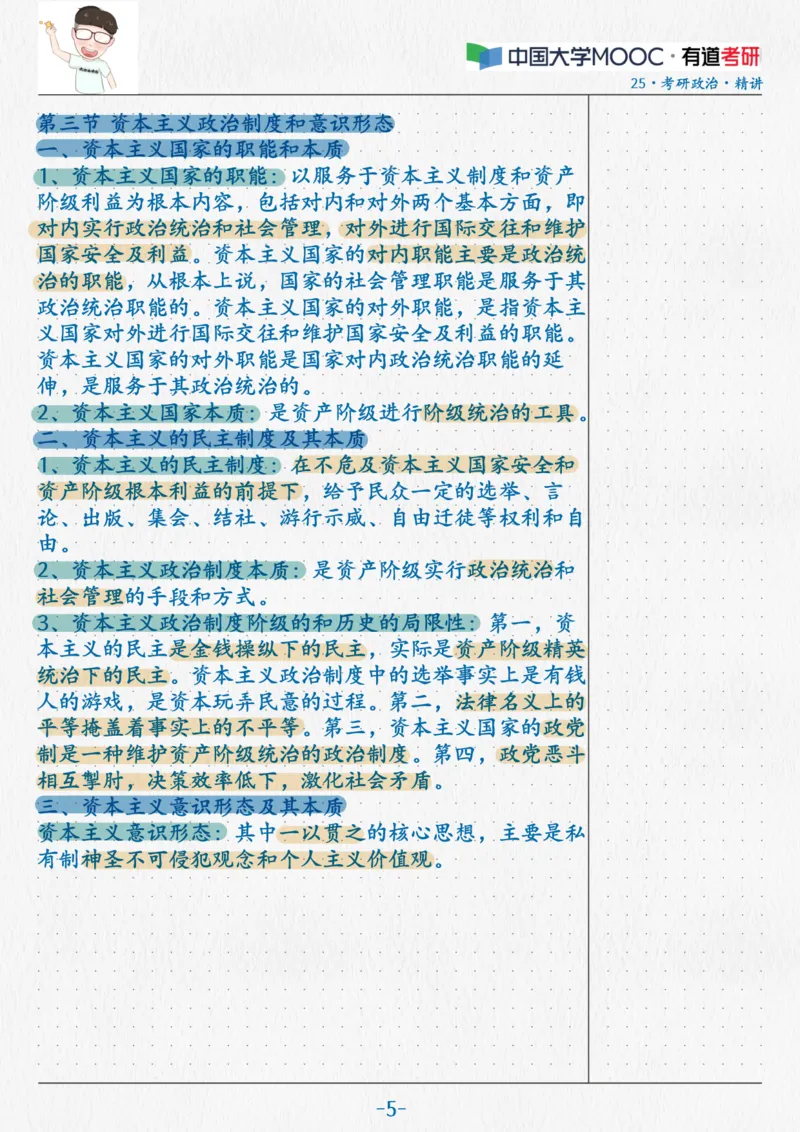 中国大学MOOC·有道考研
25·考研政治·精讲
第三节 资本主义政治制度和意识形态
一、资本主义国家的职能和本质
1、资本主义国家的职能：以服务于资本主义制度和资产
阶级利益为根本内容，包括对内和对外两个基本方面，即
对内实行政治统治和社会管理，对外进行国际交往和维护
国家安全及利益。资本主义国家的对内职能主要是政治统
治的职能，从根本上说，国家的社会管理职能是服务于其
政治统治职能的。资本主义国家的对外职能，是指资本主
义国家对外进行国际交往和维护国家安全及利益的职能。
资本主义国家的对外职能是国家对内政治统治职能的延
伸，是服务于其政治统治的。
2、资本主义国家本质：是资产阶级进行阶级统治的工具。
二、资本主义的民主制度及其本质
1、资本主义的民主制度：在不危及资本主义国家安全和
资产阶级根本利益的前提下，给予民众一定的选举、言
论、出版、集会、结社、游行示威、自由迁徒等权利和自
由。
2、资本主义政治制度本质：是资产阶级实行政治统治和
社会管理的手段和方式。
3、资本主义政治制度阶级的和历史的局限性：第一，资
本主义的民主是金钱操纵下的民主，实际是资产阶级精英
统治下的民主。资本主义政治制度中的选举事实上是有钱
人的游戏，是资本玩弄民意的过程。第二，法律名义上的
平等掩盖着事实上的不平等。第三，资本主义国家的政党
制是一种维护资产阶级统治的政治制度。第四，政党恶斗
相互掣肘，决策效率低下，激化社会矛盾。
三、资本主义意识形态及其本质
资本主义意识形态：其中一以贯之的核心思想，主要是私
有制神圣不可侵犯观念和个人主义价值观。
-5-